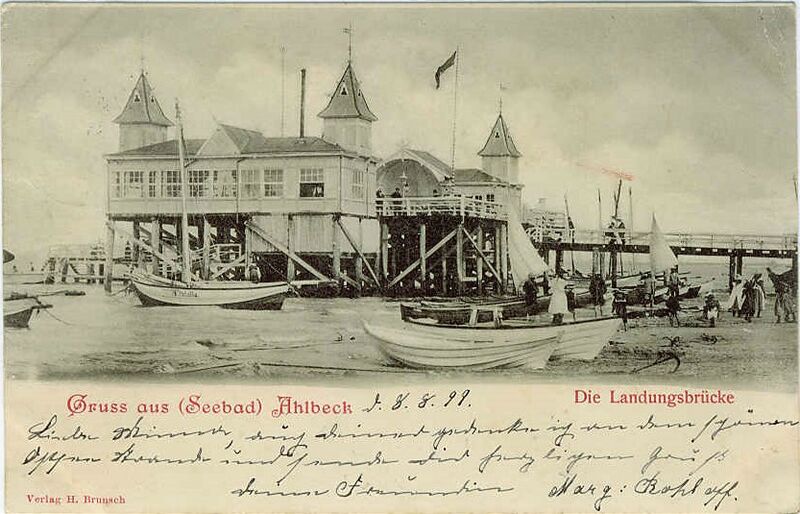 Gruss aus (Seebad) Ahlbeck d. 8. 8. 99.
Die Landungsbrücke
Liebe Minna, auch deiner gedenke ich an dem schönen
Ostsee Strande und sende dir herzlichen Gruß
deine Freundin Marg: Kohloff.
Verlag H. Brunsch